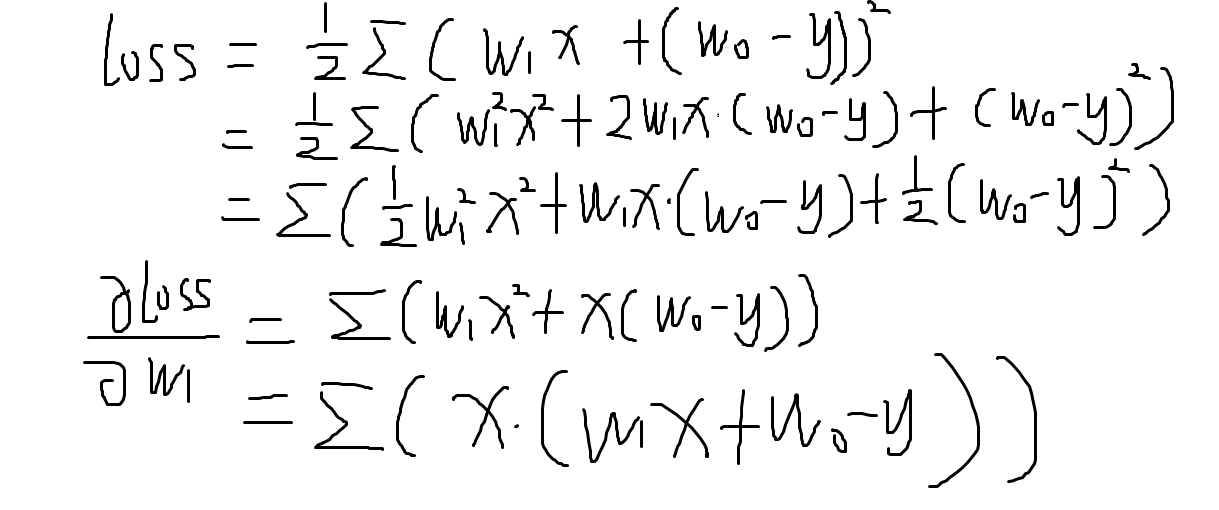 Loss = 1/2 Σ ( w₁ x + (w₀ - y))²
= 1/2 Σ ( w₁²x² + 2w₁x·(w₀-y) + (w₀-y)²)
= Σ( 1/2 w₁²x² + w₁x·(w₀-y) + 1/2 (w₀-y)² )
∂Loss/∂w₁ = Σ(w₁x² + x(w₀-y))
= Σ( x·(w₁x+w₀-y))